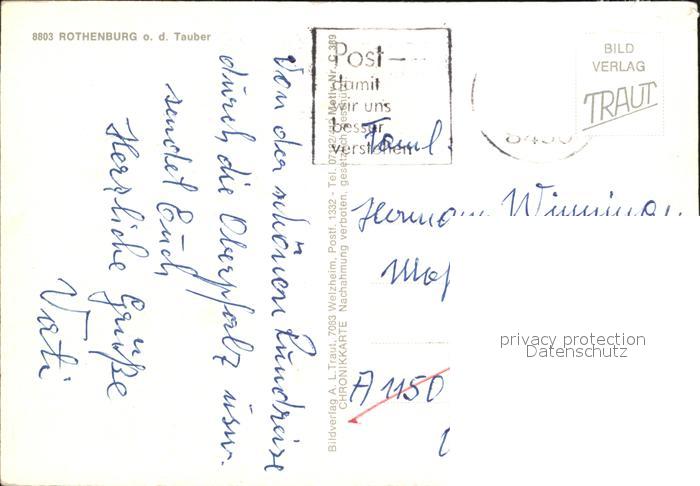 8803 ROTHENBURG o. d. Tauber
Post –
damit
wir uns
besser
verstehen
BILD
VERLAG
TRAUT
Von der schönen Rundreise
durch die Oberpfalz usw.
sendet Euch
Herzliche Grüße
Vati
Bildverlag A. L. Traut, 7063 Welzheim, Postf. 1332 - Tel.
CHRONIKKARTE Nachahmung verboten, gesetzlich geschützt
Faml.
Hermann
A 1150
privacy protection
Datenschutz